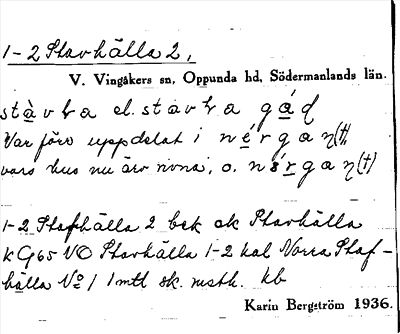 1-2 Stavhälla 2,
V. Vingåkers sn, Oppunda hd, Södermanlands län.
stàvra el. stavra gád
Var förr uppdelat i nérgaŋ(†),
vars hus nu äro rivna, o. nérgaŋ(†)
1-2 Stafhälla 2 bek ek Stavhälla
kG65 NO Stavhälla 1-2 kal Norra Staf-
hälla No 1 1 mtl sk. msth. kb
Karin Bergström 1936.